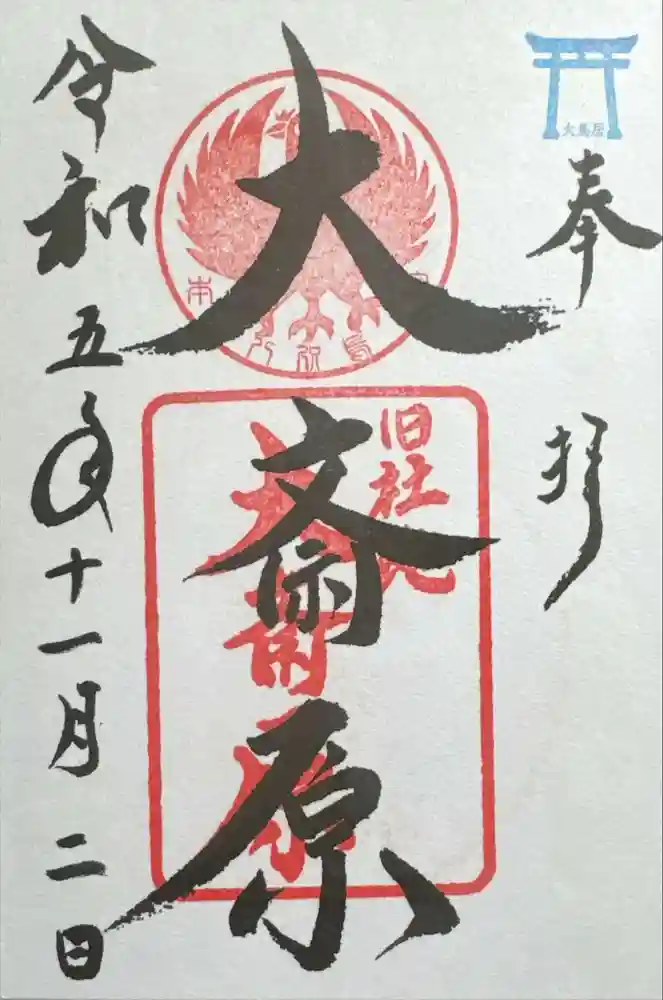 大鳥居
奉拝
旧社地
大斎原
大斎原
令和五年十一月二日